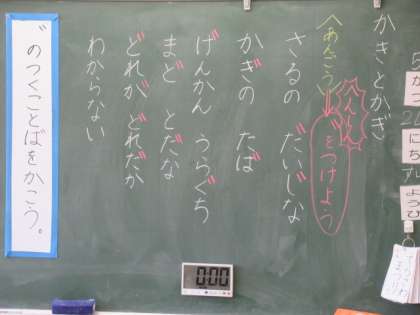 かきとかぎ
〈あんごう〉
へんしん
゛をつけよう
さるの だいじな
かぎの たば
げんかん うらぐち
まど とだな
どれが どれだか
わからない
゛のつくことばをかこう。
0:00